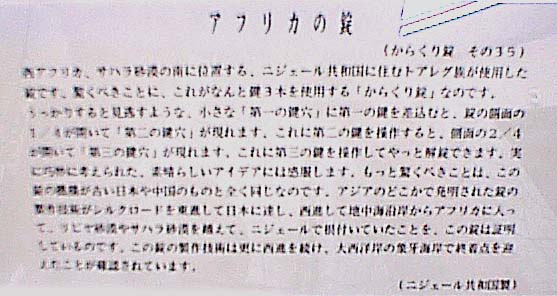 アフリカの錠
(からくり錠 その35)
西アフリカ、サハラ砂漠の南に位置する、ニジェール共和国に住むトアレグ族が使用した
錠です。驚くべきことに、これがなんと鍵3本を使用する「からくり錠」なのです。
うっかりすると見逃すような、小さな「第一の鍵穴」に第一の鍵を差込むと、錠の側面の
1/4が開いて「第二の鍵穴」が現れます。これに第二の鍵を操作すると、側面の2/4
が開いて「第三の鍵穴」が現れます。これに第三の鍵を操作してやっと解錠できます。実
に巧妙に考えられた、素晴らしいアイデアには感服します。もっと驚くべきことは、この
錠の機構が古い日本や中国のものと全く同じなのです。アジアのどこかで発明された錠の
製作技術がシルクロードを東進して日本に達し、西進して地中海沿岸からアフリカに入っ
て、リビヤ砂漠やサハラ砂漠を越えて、ニジェールで根付いていたことを、この錠は証明
しているのです。この錠の製作技術は更に西進を続け、大西洋岸の象牙海岸で終着点を迎
えたことが確認されています。
(ニジェール共和国製)